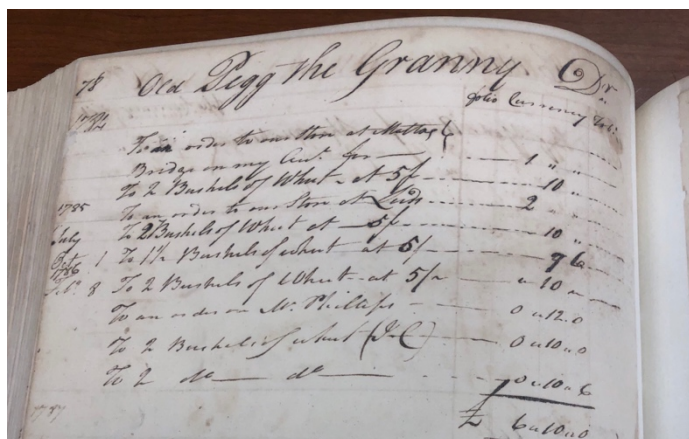 78 Old Pegg the Granny Dr
folio Currency Tob:
1784
To an order to our Store at Mattox
Bridge on my Acct. for 1 " "
To 2 Bushels of Wheat at 5/ 10 "
1785 To an order to our Store at Leeds 2 " "
July To 2 Bushels of Wheat at 5/ 10 "
Oct. 1 To 1 1/2 Bushels of wheat at 5/ 7 6
1786 8 To 2 Bushels of Wheat at 5/ " 10 "
To an order on Mr. Phillips 0 " 12 . 0
To 2 Bushels of wheat 0 " 10 " 0
To 2 do do 0 " 10 " 6
£ 6 " 10 " 0
1787